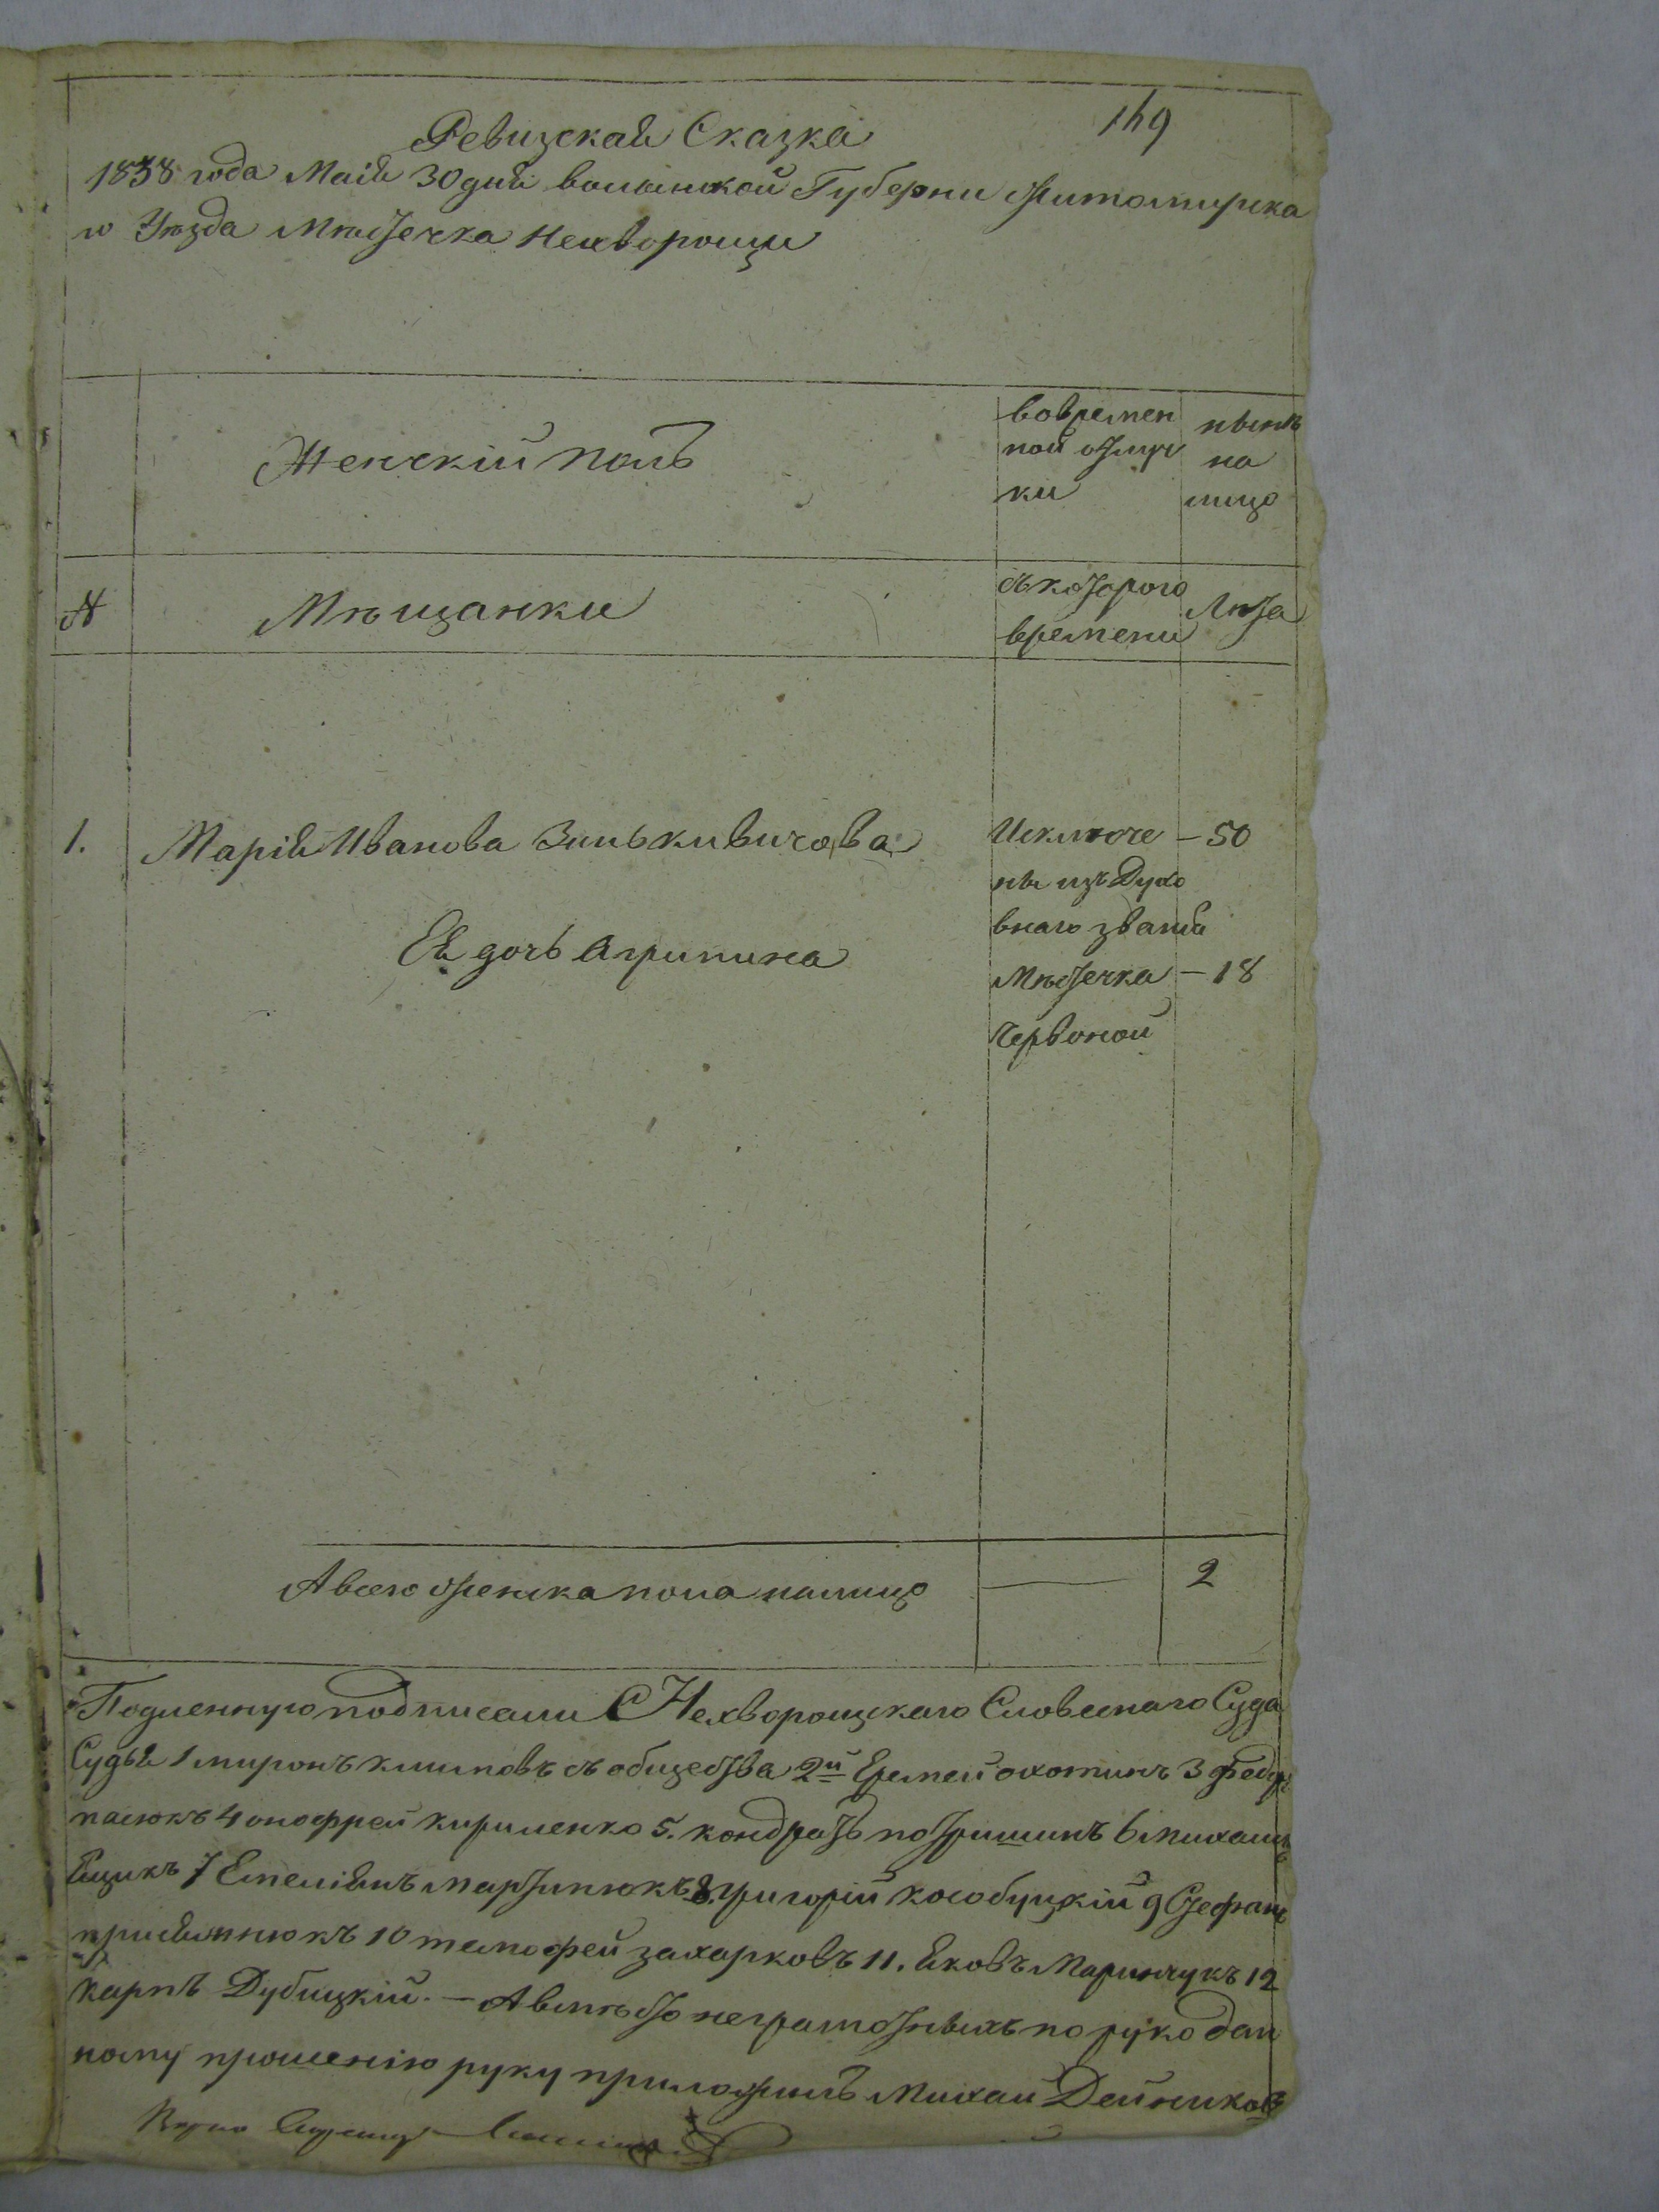 169
Ревизская Сказка
1858 года Маія 30 дня волынской Губерни Житомирска
го Уезда Мѣстечка Нехворощи
Женский полъ
вовремен
ной отлуч
ки
нынѣ
на
лицо
№
Мѣщанки
съ которого
времени
Лѣта
1. Марія Иванова Зинькивичова
Исключе – 50
ны изъ Духо
внаго звания
Ея дочь Агрипина
Мѣстечка – 18
Червоной
А всего женска пола налицо — 2
Подленную подписали С Нехворощскаго Словеснаго Суда
Судья 1 миронъ климовъ съ общества 2й Еремей охотинъ 3 федоръ
пасюкъ 4 онофрей кириленко 5. кондратъ потришинъ 6 михаилъ
Ящикъ 7 Емеліянъ мартинюкъ 8. григорій кособуцкій 9 Стефанъ
присяжнюкъ 10 темофей захарковъ 11. Яковъ Маринчукъ 12
карпъ Дубицкій. – А вместо неграмотныхъ по рукодан
ному прошенію руку приложилъ Михаи Дейников